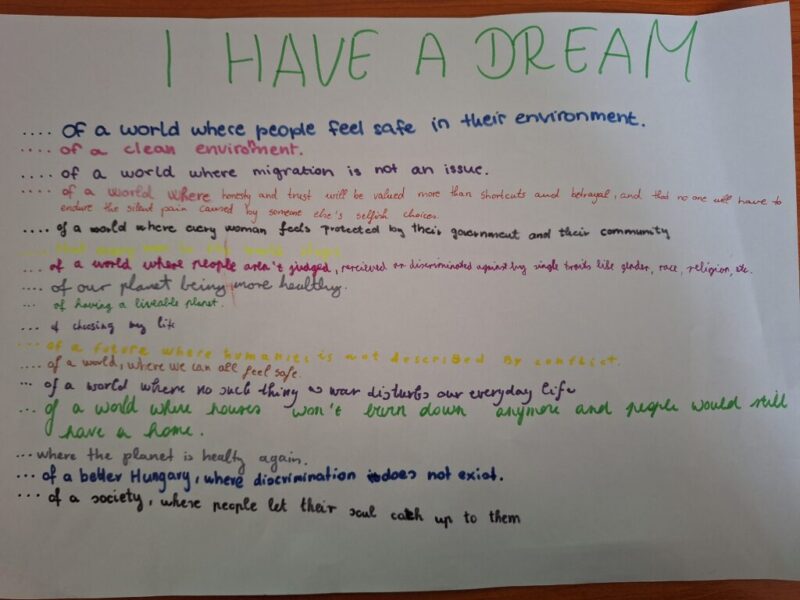 I HAVE A DREAM
.... of a world where people feel safe in their environment.
.... of a clean environment.
.... of a world where migration is not an issue.
.... of a world where honesty and trust will be valued more than shortcuts and betrayal, and that no one will have to
endure the silent pain caused by someone else's selfish choices.
.... of a world where every woman feels protected by their government and their community
.... that every in the world
.... of a world where people aren't judged, percieved or discriminated against by single traits like gender, race, religion, etc.
.... of our planet being more healthy.
... of having a liveable planet.
... of choosing my life
... of a future where humanies is not described by conflict.
... of a world, where we can all feel safe.
... of a world where no such thing as war disturbs our everyday life
... of a world where houses won't burn down anymore and people would still
have a home.
... where the planet is healty again.
... of a better Hungary, where discrimination does not exist.
... of a society, where people let their soul catch up to them